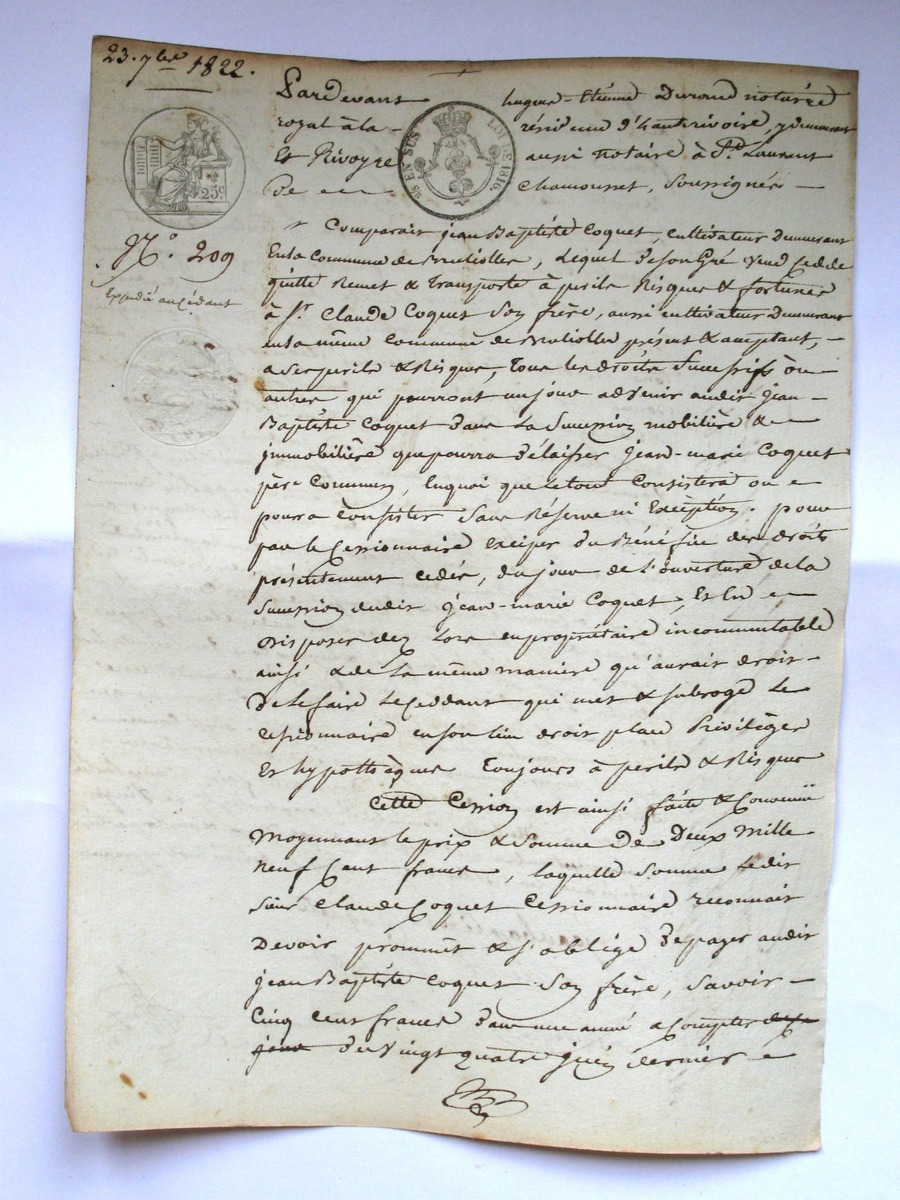 23. 7bre 1822.
Pardevant hugues-Etienne Durand notaire
royal à la résidence d'hauterivoire, y demeurant
Et Rivoyre aussi notaire à St. Laurent
De Chamousset, soussignés
25 EN SUS LOI DE 1816
25c
No. 209
Expedié au cédant
Comparait jean Baptiste Coquet, cultivateur Demeurant
En la Commune de , Lequel de son Gré vend cedde
quitte Remet & transporte à perils Risques & fortunes
à Sr. Claude Coquet Son frère, aussi cultivateur Demeurant
en la même Commune de présent & acceptant,
a ses perils & Risques, tous les droits Successifs ou
autres qui pourront un jour advenir audit jean
Baptiste Coquet dans La Succession mobilière &
immobilière que pourra délaisser jean-marie Coquet
père Commun, En quoi que le tout Consistera ou
pourra Consister Sans Réserve ni Exception. pour
par le Cessionnaire exciper du Bénéfice des droits
présentement cedés, du jour de l'ouverture de la
Succession dudit jean-marie Coquet, Et En
Disposer dez Lors en propriétaire incommutable
ainsi & de la même maniere qu'aurait droit
De le faire le Ceddant qui met & subroge le
cessionnaire en son lieu droit place Privilèges
Et hypothèques toujours à perils & Risques
Cette Cession est ainsi faite & Convenue
Moyennant le prix & Somme De Deux Mille
Neuf Cent francs, laquelle Somme Ledit
Sieur Claude Coquet Cessionnaire reconnait
Devoir prommet & s'oblige de payer audit
jean Baptiste Coquet Son frère, Savoir
Cinq Cent francs dans une année a Compter de ce
jour du vingt quatre juin dernier